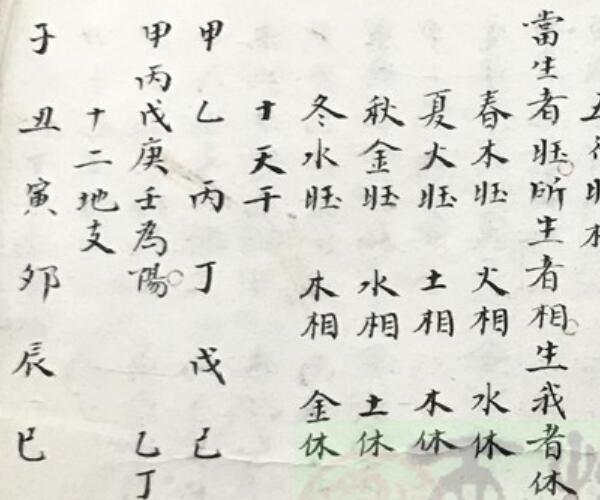 五行旺相
當生者旺所生者相生我者休
春木旺　火相　水休
夏火旺　土相　木休
秋金旺　水相　土休
冬水旺　木相　金休
十天干
甲乙丙丁戊己
甲丙戊庚壬為陽　乙丁
十二地支
子丑寅卯辰巳